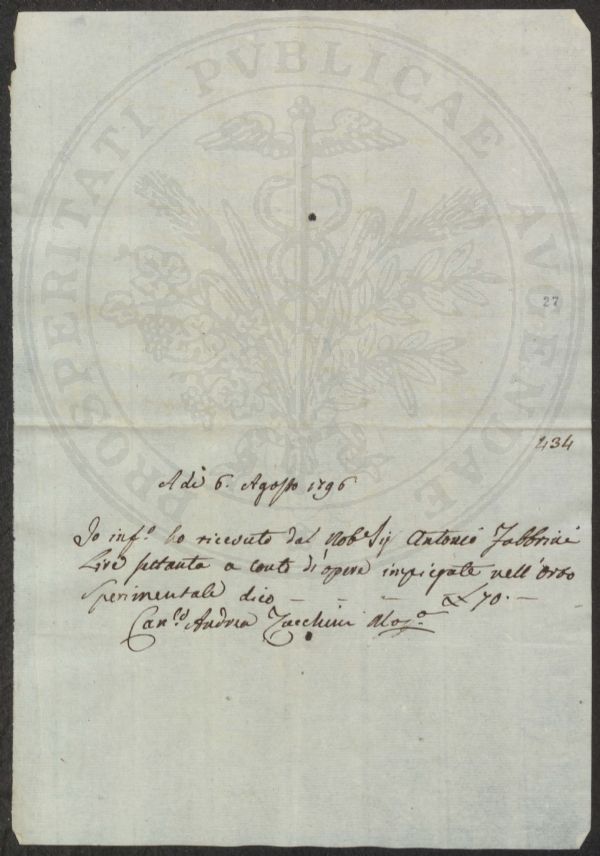 PROSPERITATI PVBLICAE AVGENDAE
27
434
A dì 6. Agosto 1796
Io inf.o ho ricevuto dal Nob Sig Antonio Fabbrini
Lire settanta a conto di opere impiegate nell'Orto
Sperimentale dico — — — £ 70. —
Can.co Andrea Zucchini